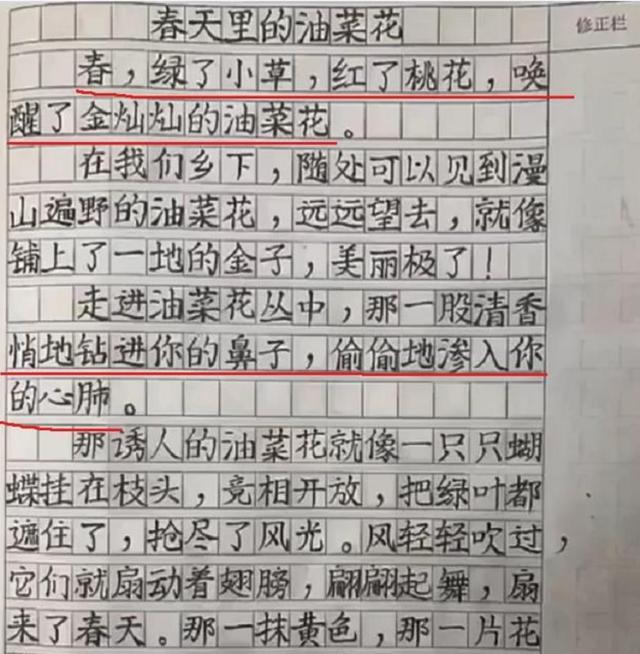 春天里的油菜花
修正栏
春，绿了小草，红了桃花，唤
醒了金灿灿的油菜花。
在我们乡下，随处可以见到漫
山遍野的油菜花，远远望去，就像
铺上了一地的金子，美丽极了！
走进油菜花丛中，那一股清香
悄地钻进你的鼻子，偷偷地渗入你
的心肺。
那诱人的油菜花就像一只只蝴
蝶挂在枝头，竞相开放，把绿叶都
遮住了，抢尽了风光。风轻轻吹过，
它们就扇动着翅膀，翩翩起舞，扇
来了春天。那一抹黄色，那一片花